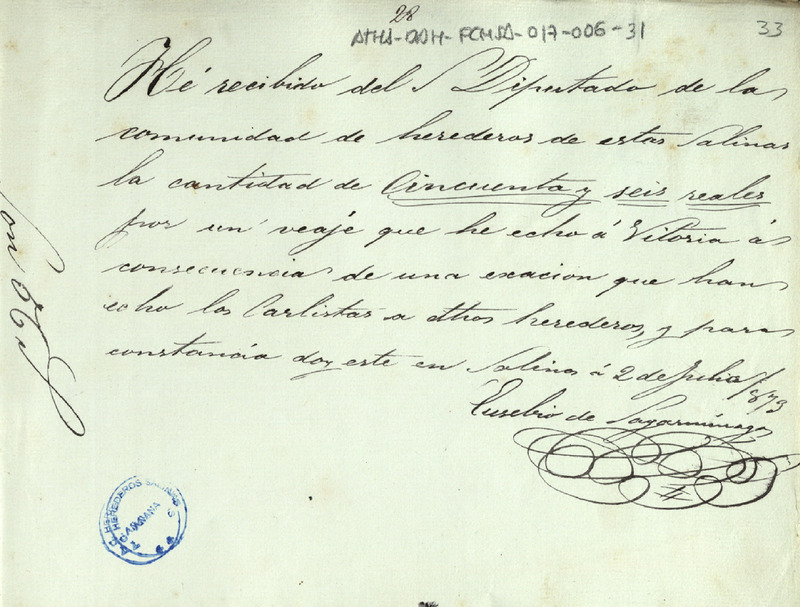 28
ATHA-DAH-FCMSA-017-006-31
33
Hé recibido del S Diputado de la
comunidad de herederos de estas Salinas
la cantidad de Cincuenta y seis reales
por un veaje que he echo á Vitoria á
consecuencia de una exacion que han
echo los Carlistas a dthos herederos, y para
constancia doy este en Salinas á 2 de Julio 1873
Eusebio de Sagarminaga
Son 56
HEREDEROS SALINAS